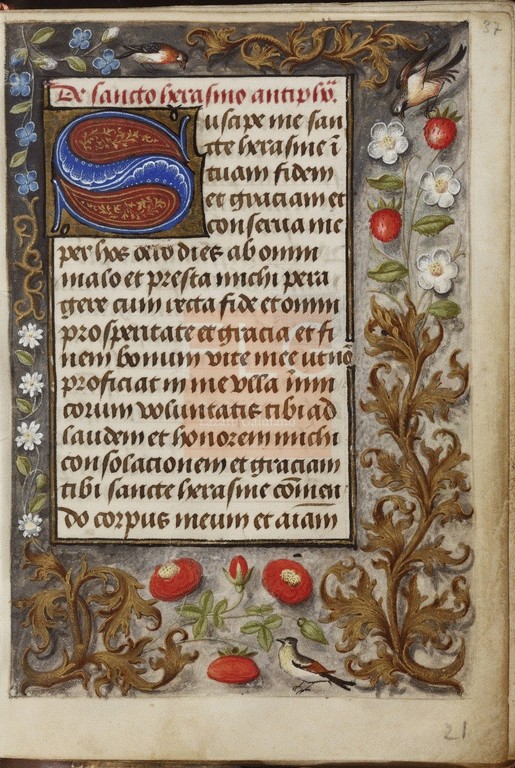 37
De sancto herasmo antipho.
Suscipe me san
cte herasme ī
tuam fidem
et graciam et
conserua me
per hos octo dies ab omni
malo et presta michi pera
gere cum recta fide et omni
prosperitate et gracia et fi
nem bonum vite mee ut nō
proficiat in me vlla inim
corum voluntatis tibi ad
laudem et honorem michi
consolacionem et graciam
tibi sancte herasme cōmen
do corpus meum et aīam
21